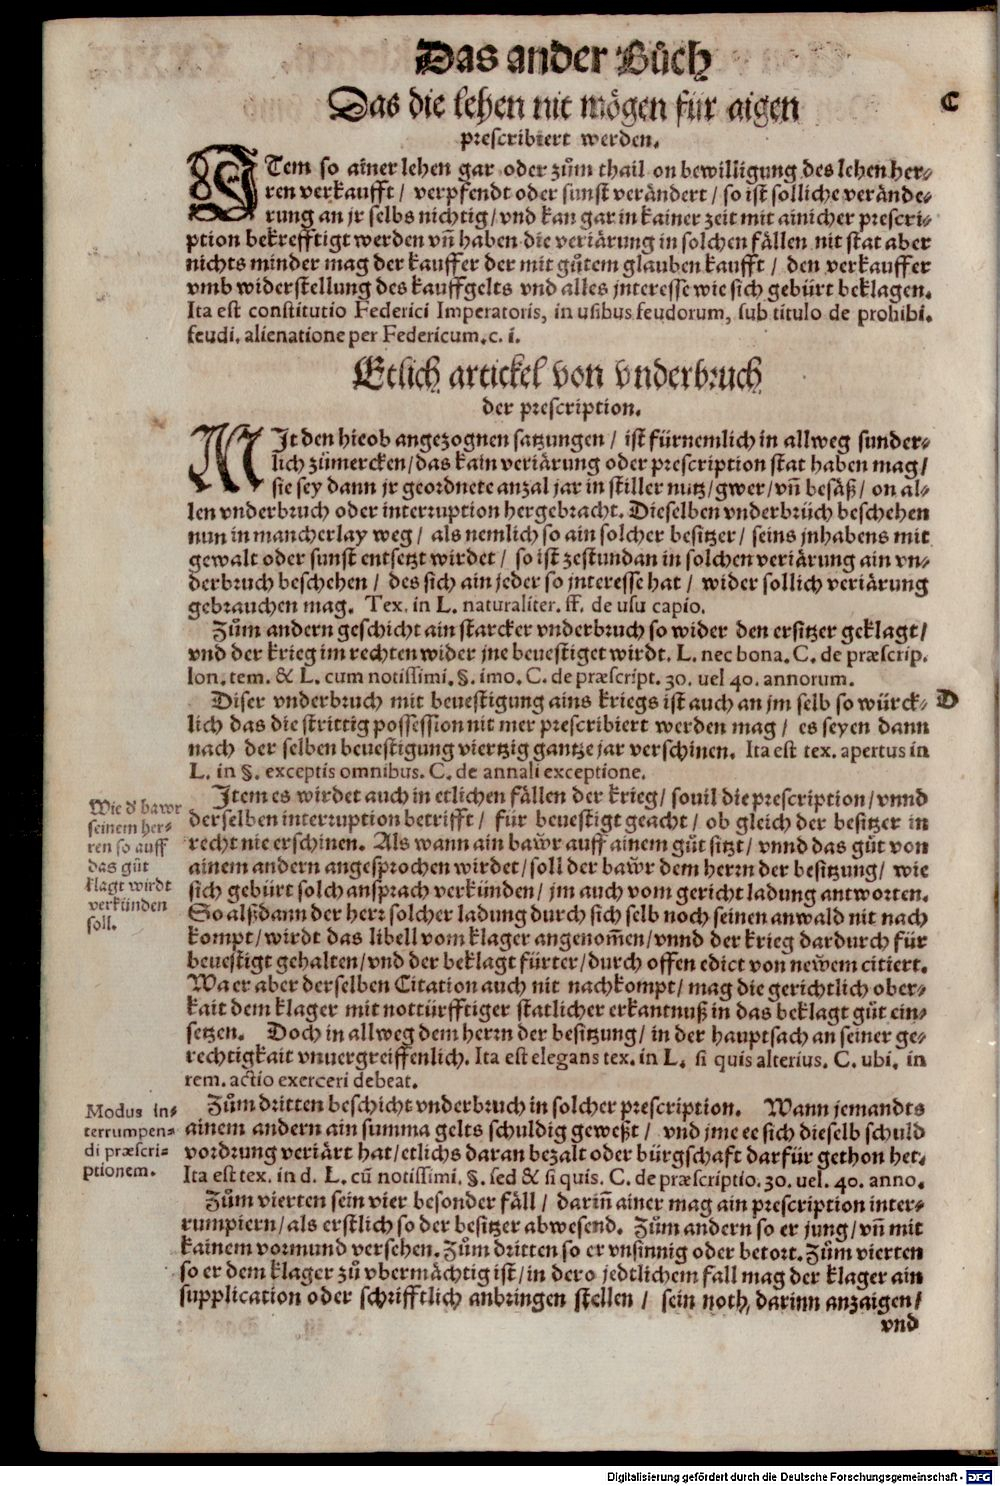 Das ander Bůch
Das die lehen nit mögen für aigen
C
prescribiert werden.
ITem so ainer lehen gar oder zům thail on bewilligung des lehen her-
ren verkaufft / verpfendt oder sunst verändert / so ist solliche verände-
rung an jr selbs nichtig / vnd kan gar in kainer zeit mit ainicher prescri-
ption bekrefftigt werden vñ haben die veriärung in solchen fällen nit stat aber
nichts minder mag der kauffer der mit gůtem glauben kaufft / den verkauffer
vmb widerstellung des kauffgelts vnd alles jnteresse wie sich gebürt beklagen.
Ita est constitutio Federici Imperatoris, in usibus feudorum, sub titulo de prohibi.
feudi. alienatione per Federicum. c. i.
Etlich artickel von vnderbruch
der prescription.
MIt den hieob angezognen satzungen / ist fürnemlich in allweg sunder-
lich zůmercken / das kain veriärung oder prescription stat haben mag /
sie sey dann jr geordnete anzal jar in stiller nutz / gwer / vñ besäß / on al-
len vnderbruch oder interruption hergebracht. Dieselben vnderbrüch beschehen
nun in mancherlay weg / als nemlich so ain solcher besitzer / seins jnhabens mit
gewalt oder sunst entsetzt wirdet / so ist zestundan in solchen veriärung ain vn-
derbruch beschehen / des sich ain jeder so jnteresse hat / wider sollich veriärung
gebrauchen mag. Tex. in L. naturaliter. ff. de usu capio.
Zům andern geschicht ain starcker vnderbruch so wider den ersitzer geklagt /
vnd der krieg im rechten wider jne beuestiget wirdt. L. nec bona. C. de præscrip.
lon. tem. & L. cum notissimi. §. imo. C. de præscript. 30. uel 40. annorum.
Diser vnderbruch mit beuestigung ains kriegs ist auch an jm selb so würck-
D
lich das die strittig possession nit mer prescribiert werden mag / es seyen dann
nach der selben beuestigung viertzig gantze jar verschinen. Ita est tex. apertus in
L. in §. exceptis omnibus. C. de annali exceptione.
Wie d' bawr
seinem her-
ren so auff
das gůt
klagt wirdt
verkünden
soll.
Jtem es wirdet auch in etlichen fällen der krieg / souil die prescription / vnnd
derselben interruption betrifft / für beuestigt geacht / ob gleich der besitzer in
recht nie erschinen. Als wann ain bawr auff ainem gůt sitzt / vnnd das gůt von
ainem andern angesprochen wirdet / soll der bawr dem herrn der besitzung / wie
sich gebürt solch ansprach verkünden / jm auch vom gericht ladung antworten.
So alßdann der herr solcher ladung durch sich selb noch seinen anwald nit nach
kompt / wirdt das libell vom klager angenom̃en / vnnd der krieg dardurch für
beuestigt gehalten / vnd der beklagt fürter / durch offen edict von newem citiert.
Wa er aber derselben Citation auch nit nachkompt / mag die gerichtlich ober-
kait dem klager mit nottürfftiger statlicher erkantnuß in das beklagt gůt ein-
setzen. Doch in allweg dem herrn der besitzung / in der hauptsach an seiner ge-
rechtigkait vnuergreiffenlich. Ita est elegans tex. in L. si quis alterius. C. ubi. in
rem. actio exerceri debeat.
Modus in-
terrumpen-
di præscri-
ptionem.
Zům dritten beschicht vnderbruch in solcher prescription. Wann jemandts
ainem andern ain summa gelts schuldig geweßt / vnd jme ee sich dieselb schuld
vordrung veriärt hat / etlichs daran bezalt oder bürgschaft darfür gethon het.
Ita est tex. in d. L. cũ notissimi. §. sed & si quis. C. de præscriptio. 30. uel. 40. anno.
Zům vierten sein vier besonder fäll / dariñ ainer mag ain prescription inter-
rumpiern / als erstlich so der besitzer abwesend. Zům andern so er jung / vñ mit
kainem vormund versehen. Zům dritten so er vnsinnig oder betort. Zům vierten
so er dem klager zů vbermächtig ist / in dero jedtlichem fall mag der klager ain
supplication oder schrifftlich anbringen stellen / sein noth, darinn anzaigen /
vnd
Digitalisierung gefördert durch die Deutsche Forschungsgemeinschaft - DFG